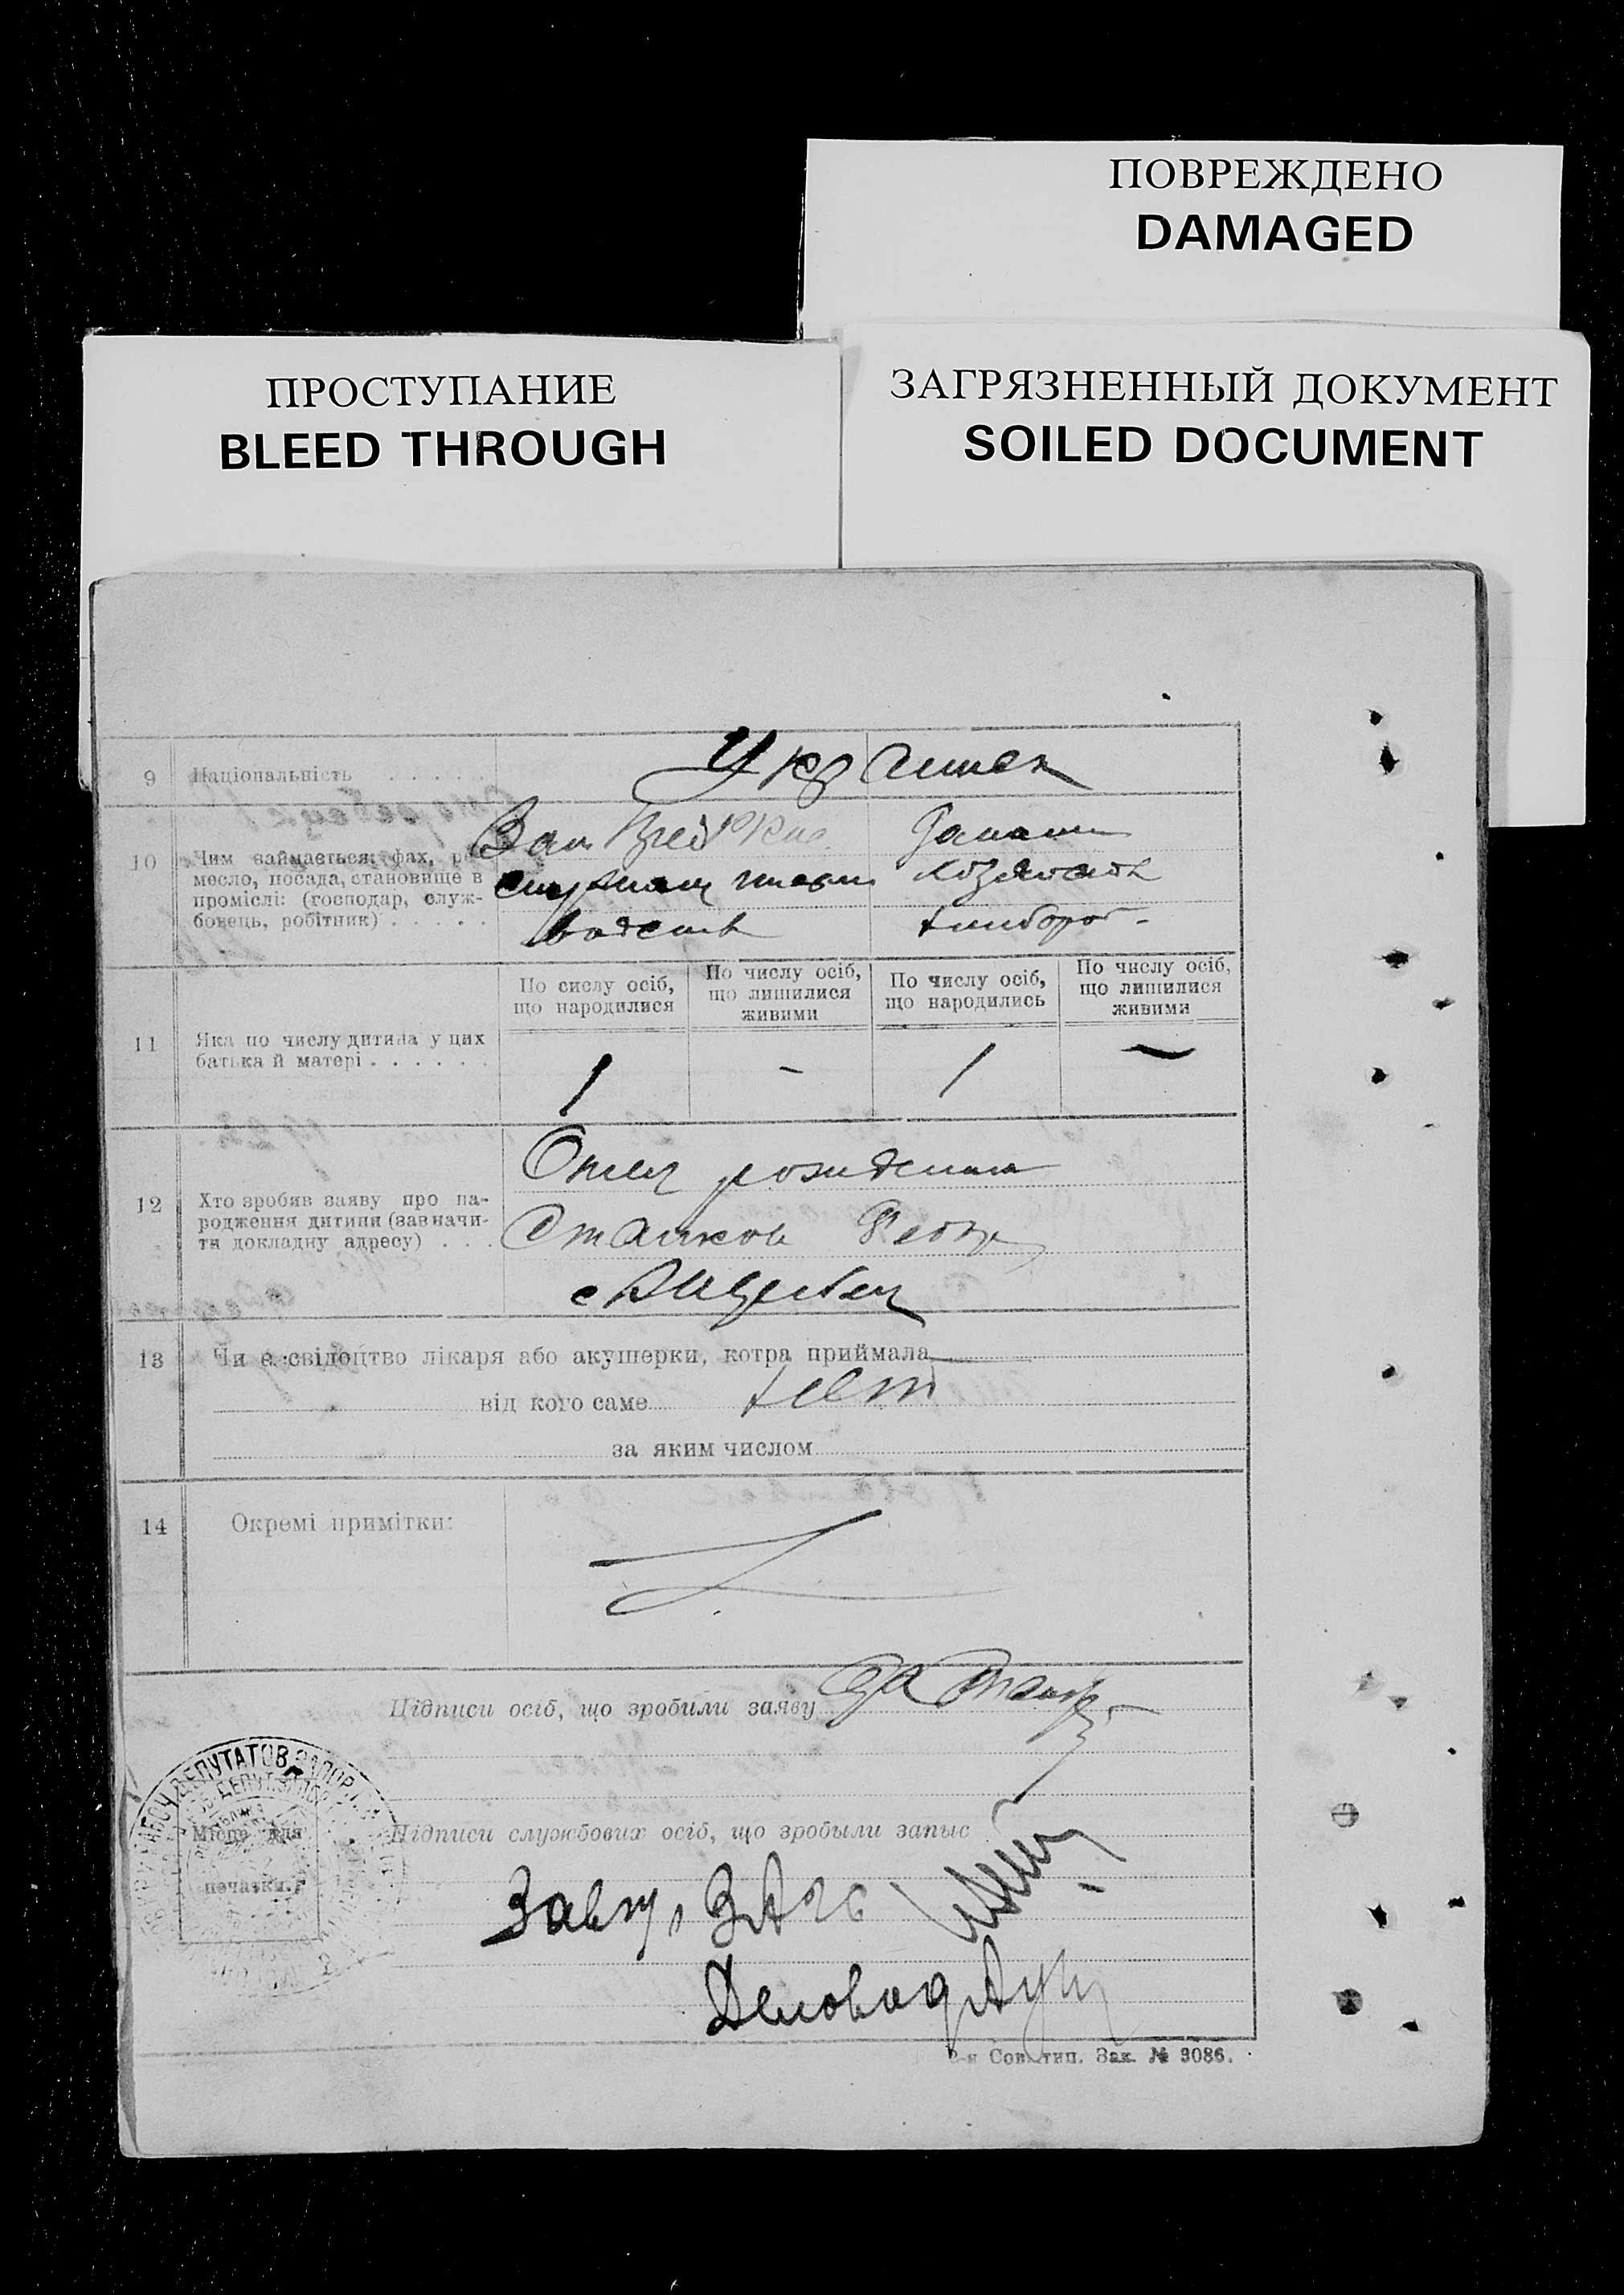 ПОВРЕЖДЕНО
DAMAGED
ПРОСТУПАНИЕ
BLEED THROUGH
ЗАГРЯЗНЕННЫЙ ДОКУМЕНТ
SOILED DOCUMENT
9 Національність . . . . .
Украинск
10 Чим займається: фах, ре-
месло, посада, становище в
проміслі: (господар, служ-
бовець, робітник) . . . . .
Зав.
водств
Домашн
хозяйств
11 Яка по числу дитина у цих
батька й матері . . . . . .
По сислу осіб,
що народилися
По числу осіб,
що лишилися
живими
По числу осіб,
що народились
По числу осіб,
що лишилися
живими
1 - 1 —
12 Хто зробив заяву про на-
родження дитини (зазначи-
ти докладну адресу) . . .
Отец рождения
Сташков Федор
13 Чи є свідоцтво лікаря або акушерки, котра приймала
від кого саме нет
за яким числом
14 Окремі примітки:
Підписи осіб, що зробили заяву
Підписи службових осіб, що зробыли запыс
ДЕПУТАТОВ ЗАПОР
Місце для
печатки.
Завзу, ЗАГС
Деловод
Сов. тип. Зак. № 3086.